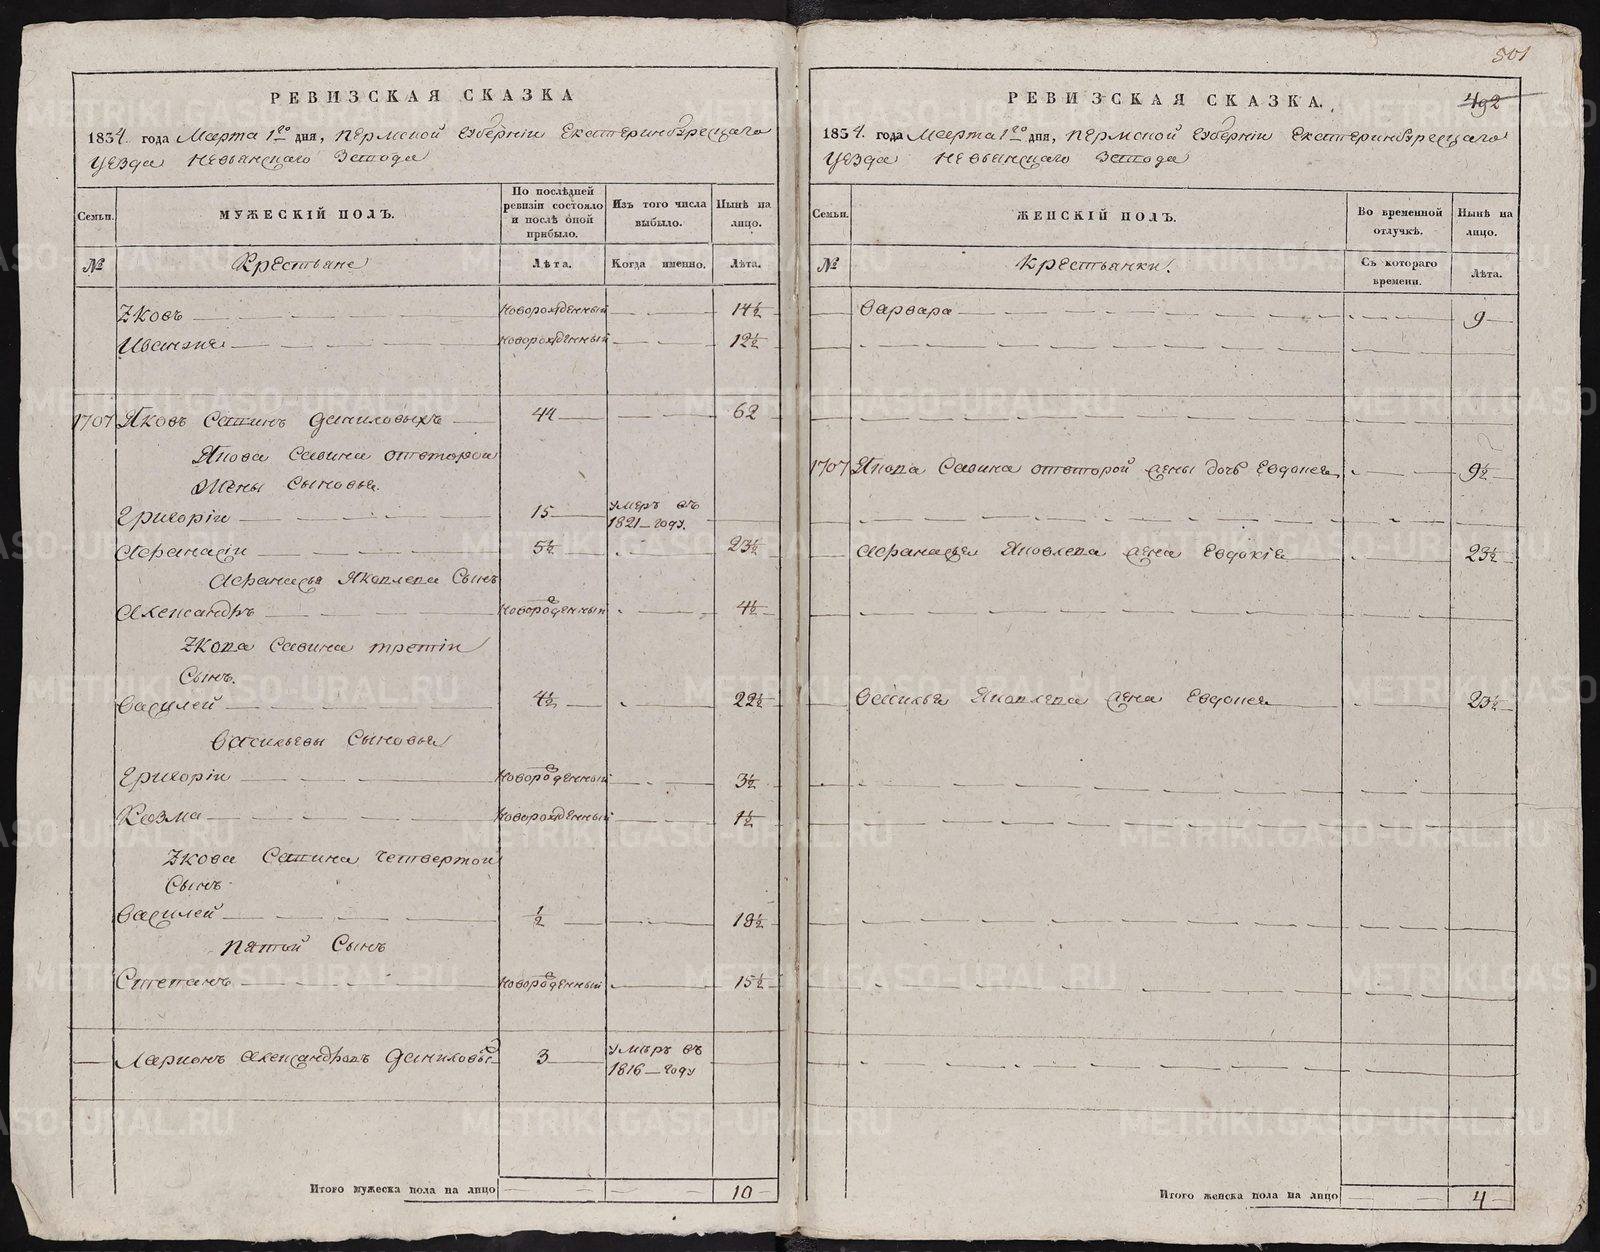 РЕВИЗСКАЯ СКАЗКА
1834. года Марта 1го дня, Пермской Губерніи Екатеринбургскаго
уезда Невьянскаго Завода
Семьи.
МУЖЕСКІЙ ПОЛЪ.
По послѣдней ревизіи состояло и послѣ оной прибыло.
Изъ того числа выбыло.
Нынѣ на лицо.
№
Крестьяне
Лѣта.
Когда именно.
Лѣта.
Яковъ новорожденный 14½
новорожденный 12½
1707 Яковъ Савинъ Даниловыхъ 44 62
Якова Савина отвторой
жены сыновья.
Григоріи 15 умеръ въ 1821 году.
Афанасіи 5½ 23½
Афанасья Яковлева сынъ
Александръ новорожденный 4½
Якова Савина третіи
сынъ.
Василей 4½ 22½
Васильевы сыновья
Григоріи новорожденный 3½
Козма новорожденный 1½
Якова Савина четвертой
сынъ
Василей ½ 18½
пятой сынъ
Степанъ новорожденный 15½
Ларионъ Александровъ Даниловыхъ 3 умеръ въ 1816 году
Итого мужеска пола на лицо 10
501
492
РЕВИЗСКАЯ СКАЗКА.
1834. года Марта 1го дня, Пермской Губерніи Екатеринбургскаго
уезда Невьянскаго Завода
Семьи.
ЖЕНСКІЙ ПОЛЪ.
Во временной отлучкѣ.
Нынѣ на лицо.
№
Крестьянки.
Съ котораго времени.
Лѣта.
Варвара 9
1707 Якова Савина отвторой жены дочь Евдокея 9½
Афанасья Яковлева жена Евдокія 23½
Василья Яковлева жена Евдокея 23½
Итого женска пола на лицо 4
METRIKI.GASO-URAL.RU